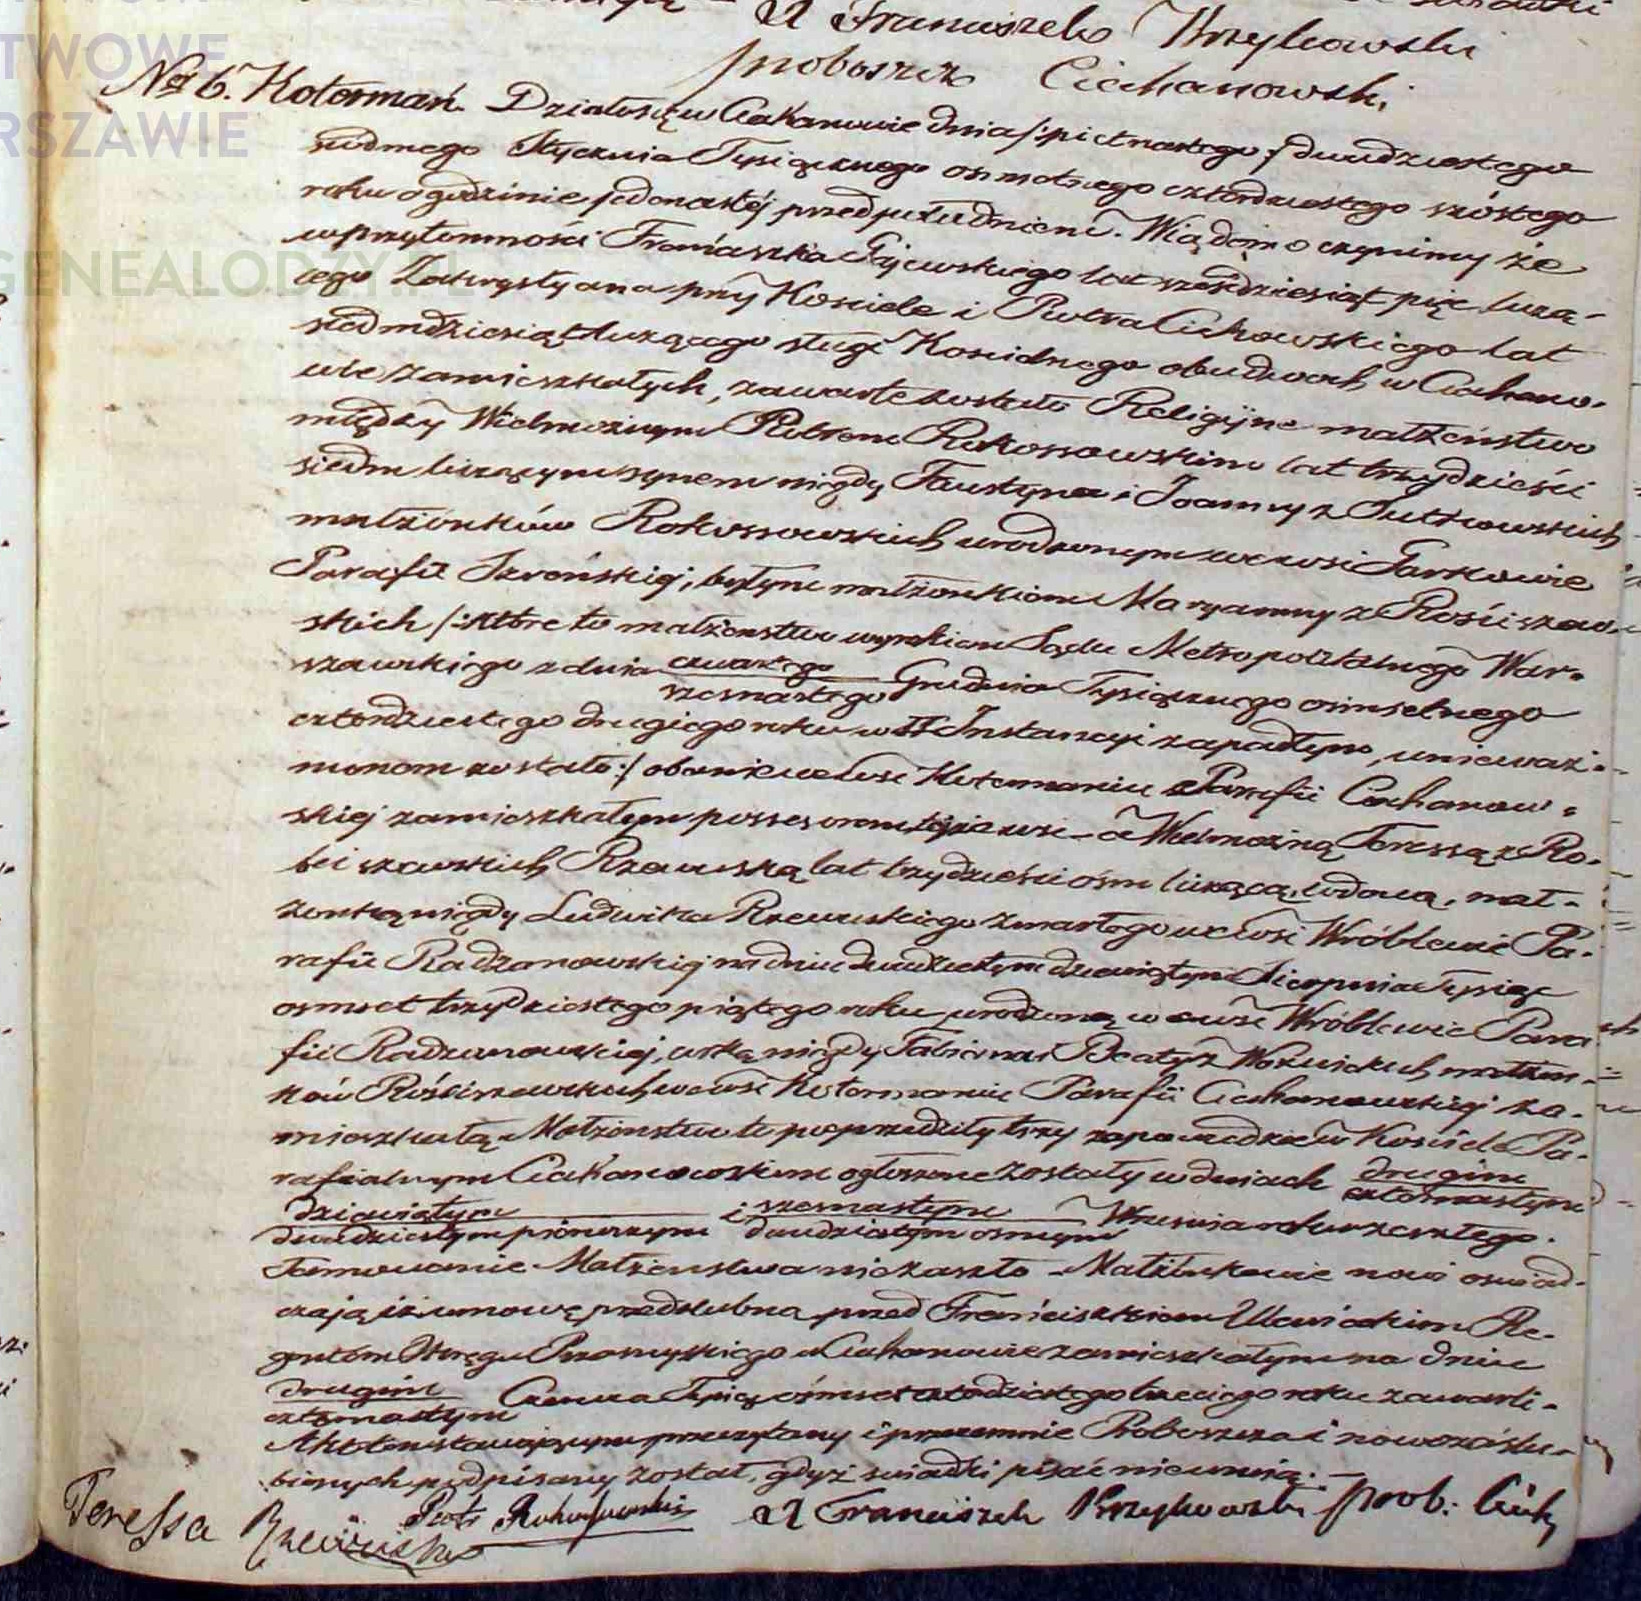 X Franciszek Krzykowski
proboszcz Ciechanowski
TWOWE
RSZAWIE
GENEALODZY.PL
No 6. Kotermań. Działo się w Ciechanowie dnia /:pietnastego:/ dwudziestego
siódmego Stycznia Tysiącznego osmsetnego czterdziestego szóstego
roku o godzinie jedenastéj przed południem. Wiadomo czynimy że
w przytomności Franciszka Gijewskiego lat sześdziesiąt pięc liczą-
cego Zakrystyana przy Kosciele i Piotra Cichowskiego lat
siedmdziesiąt liczącego sługi Koscielnego obudwóch w Ciechano-
wie zamieszkałych, zawarte zostało Religijne małżeństwo
między Wielmożnym Piotrem Rokossowskim lat trzydzieści
siedm liczącym synem niegdy Faustyna i Joanny z Sutkowskich
małżonków Rokossowskich urodzonym we wsi Garkowie
Parafii Szreńskiej, byłym małżonkiem Maryanny z Rościszew-
skich /:które to małżenstwo wyrokiem Sądu Metropolitalnego War-
szawskiego z dnia czwartego szesnastego Grudnia Tysiącznego osmsetnego
czterdziestego drugiego roku w II Instancyi zapadłym, unieważ-
nionem zostało:/ obecnie we wsi Kotermaniu Parafii Ciechanow-
skiej zamieszkałym possesorem tejże wsi - a Wielmożną Teressą z Ro-
sciszewskich Rzewuską lat trzydzieści ośm liczącą, wdową, mał-
żonką niegdy Ludwika Rzewuskiego zmarłego we wsi Wróblewie Pa-
rafii Radzanowskiej na dniu dwudziestym dziewiątym Sierpnia Tysiąc
osmset trzydziestego piątego roku, urodzoną w wsi Wróblewie Para
fii Radzanowskiej, córką niegdy Fabiana i Beaty z Woźnickich małżon-
ków Rościszewskich we wsi Kotermaniu Parafii Ciechanowskiej za-
mieszkałą. Małżenstwo to poprzedziły trzy zapowiedzie w Kościele Pa-
rafialnym Ciechanowskim ogłoszone zostały w dniach drugim czternastym
dziewiątym dwudziestym pierwszym i szesnastym dwudziestym osmym Września roku zeszłego.
Tamowanie Małżenstwa nie zaszło - Małżonkowie nowi oswiad-
czają iż umowę przedslubną przed Franciszkiem Ulewickim Re-
gentem Okręgu Przasnyskiego w Ciechanowie zamieszkałym na dniu
drugim czternastym Czerwca Tysiąc ośmset czterdziestego trzeciego roku zawarli-
Akt ten stawającym przeczytany i przezemnie Proboszcza i nowozaślu-
bionych podpisany został, gdyż swiadki pisać nie umią. -
Teressa Rzewuska Piotr Rokossowski X Franciszek Krzykowski prob: Ciech